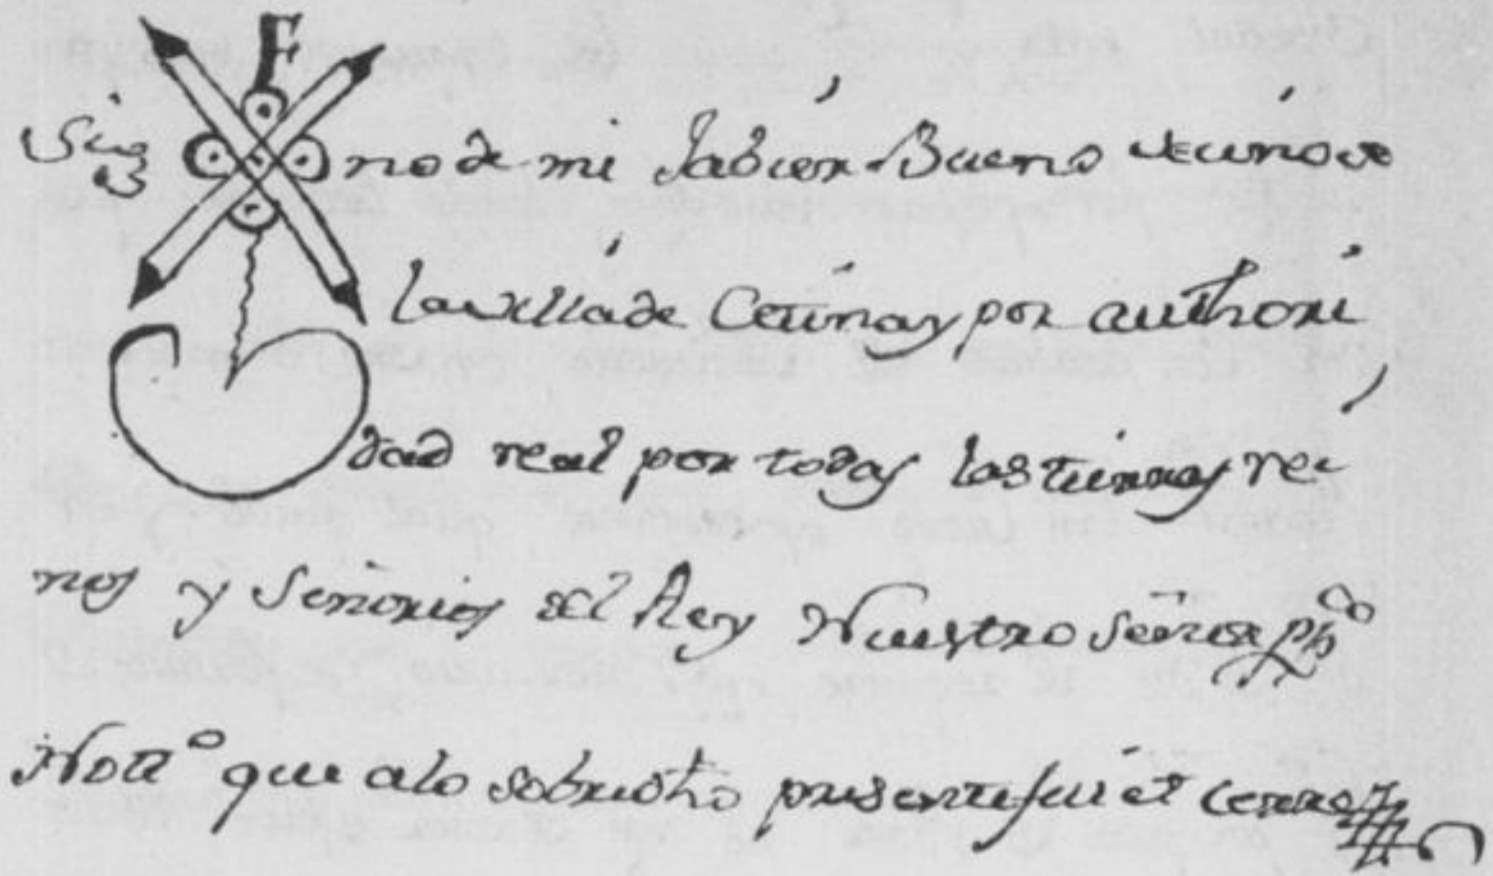 F
Sig no de mi Fabian Bueno vecino de
la villa de Cetina y por authori
dad real por todas las tierras rei
nos y Señorios del Rey Nuestro Señor ppco
Notto que a lo sobredho presente fui et cerre